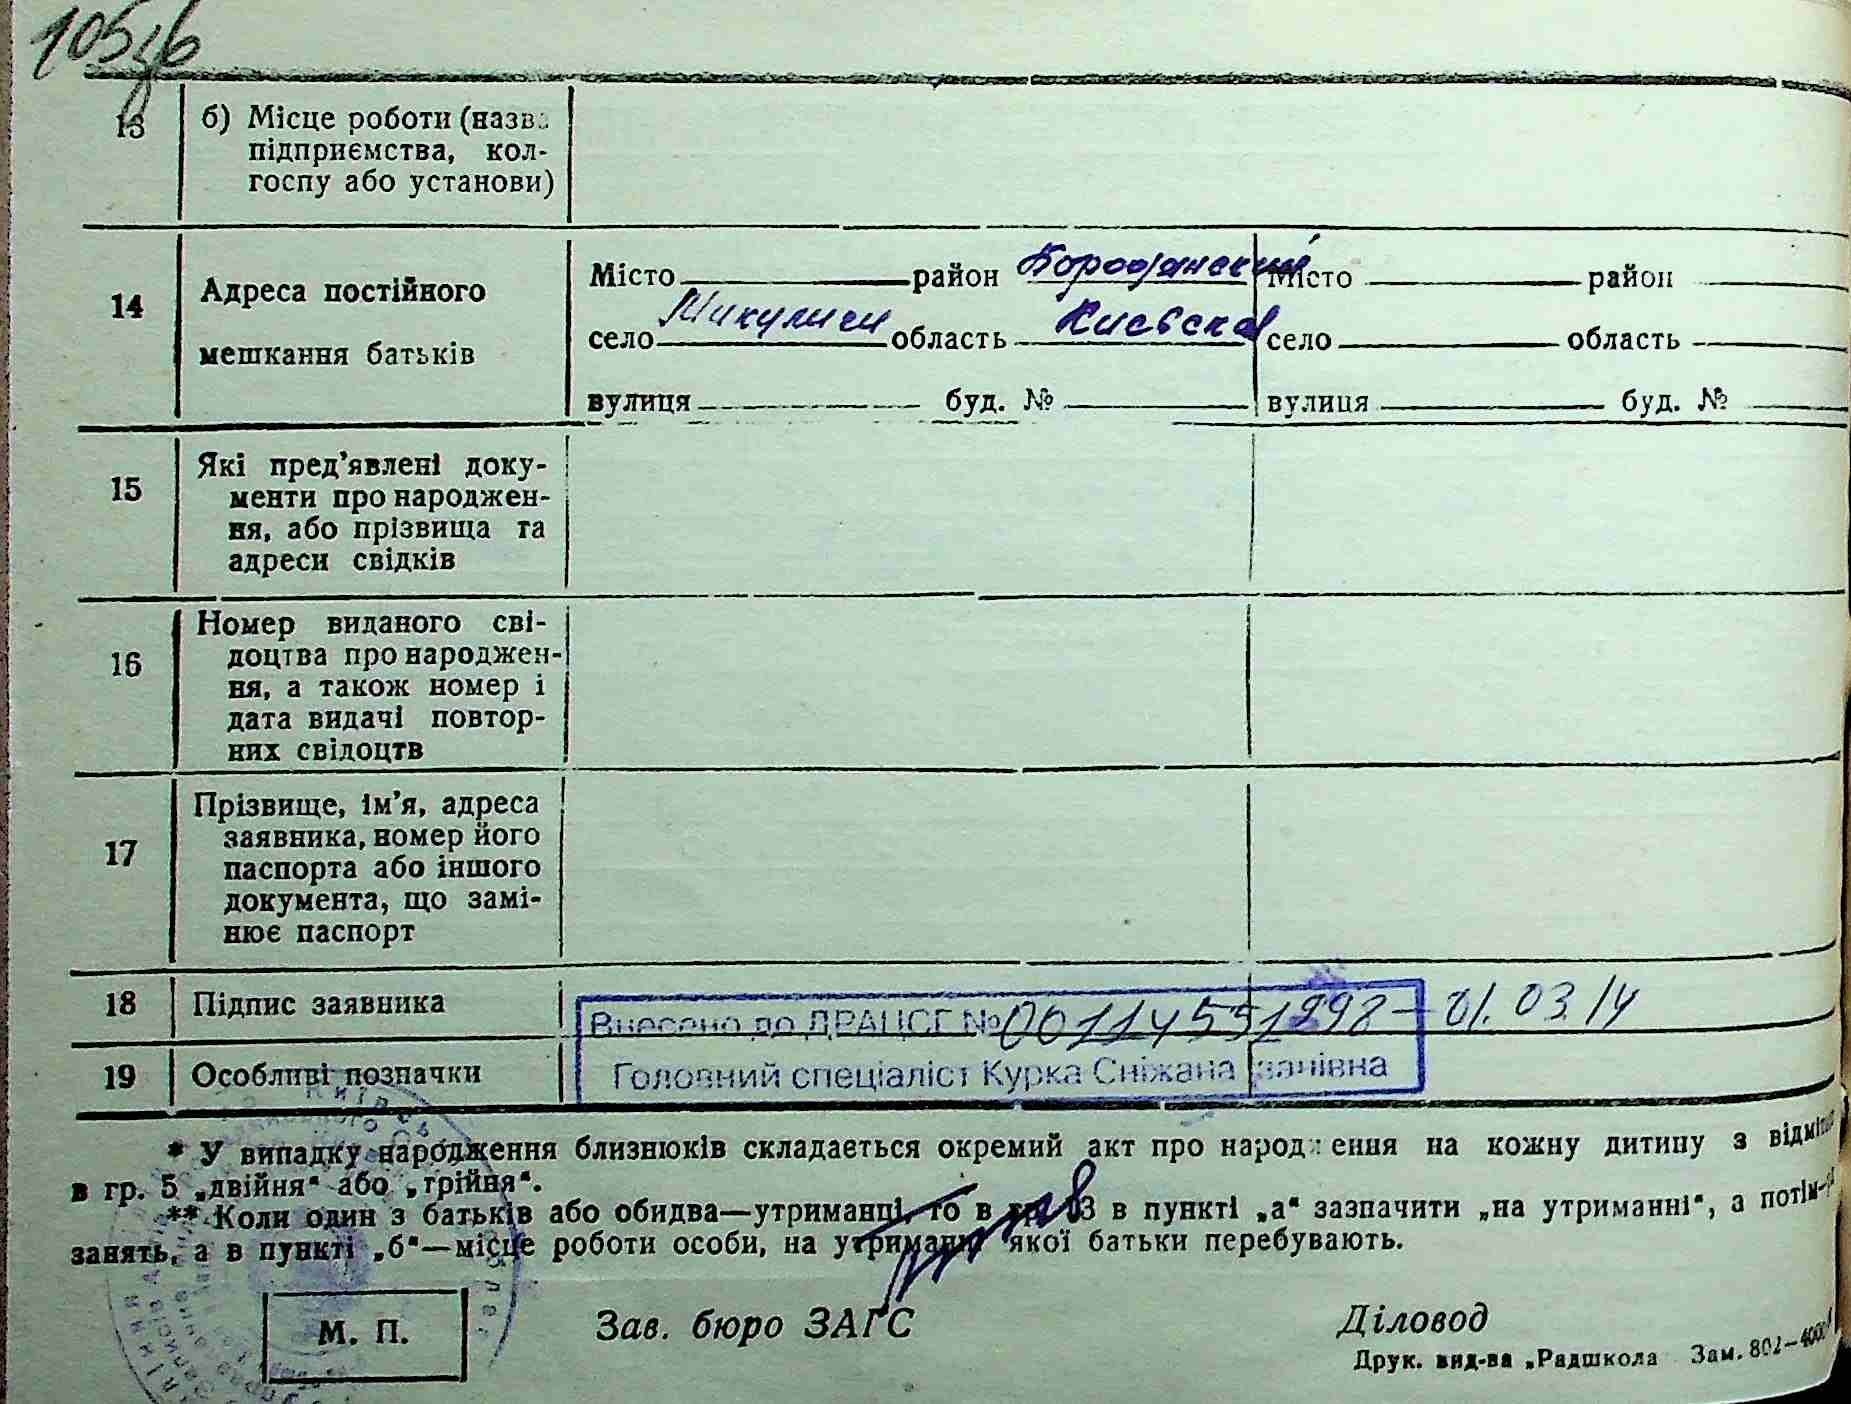 105зв
13 б) Місце роботи (назва
підприємства, кол-
госпу або установи)
14 Адреса постійного
мешкання батьків
Місто район Бородянский Місто район
село Микуличи область Киевская село область
вулиця буд. № вулиця буд. №
15 Які пред'явлені доку-
менти про народжен-
ня, або прізвища та
адреси свідків
16 Номер виданого сві-
доцтва про народжен-
ня, а також номер і
дата видачі повтор-
них свідоцтв
17 Прізвище, ім'я, адреса
заявника, номер його
паспорта або іншого
документа, що замі-
нює паспорт
18 Підпис заявника
Внесено до ДРАЦСГ № 00114551298 – 01.03.14
19 Особливі позначки
Головний спеціаліст Курка Сніжана
* У випадку народження близнюків складається окремий акт про народження на кожну дитину з відміткою
в гр. 5 „двійня“ або „трійня“.
** Коли один з батьків або обидва—утриманці, то в гр. 13 в пункті „а“ зазначити „на утриманні“, а потім
занять, а в пункті „б“—місце роботи особи, на утриманні якої батьки перебувають.
М. П.
Зав. бюро ЗАГС
Діловод
Друк. вид-ва „Радшкола Зам. 802—4000